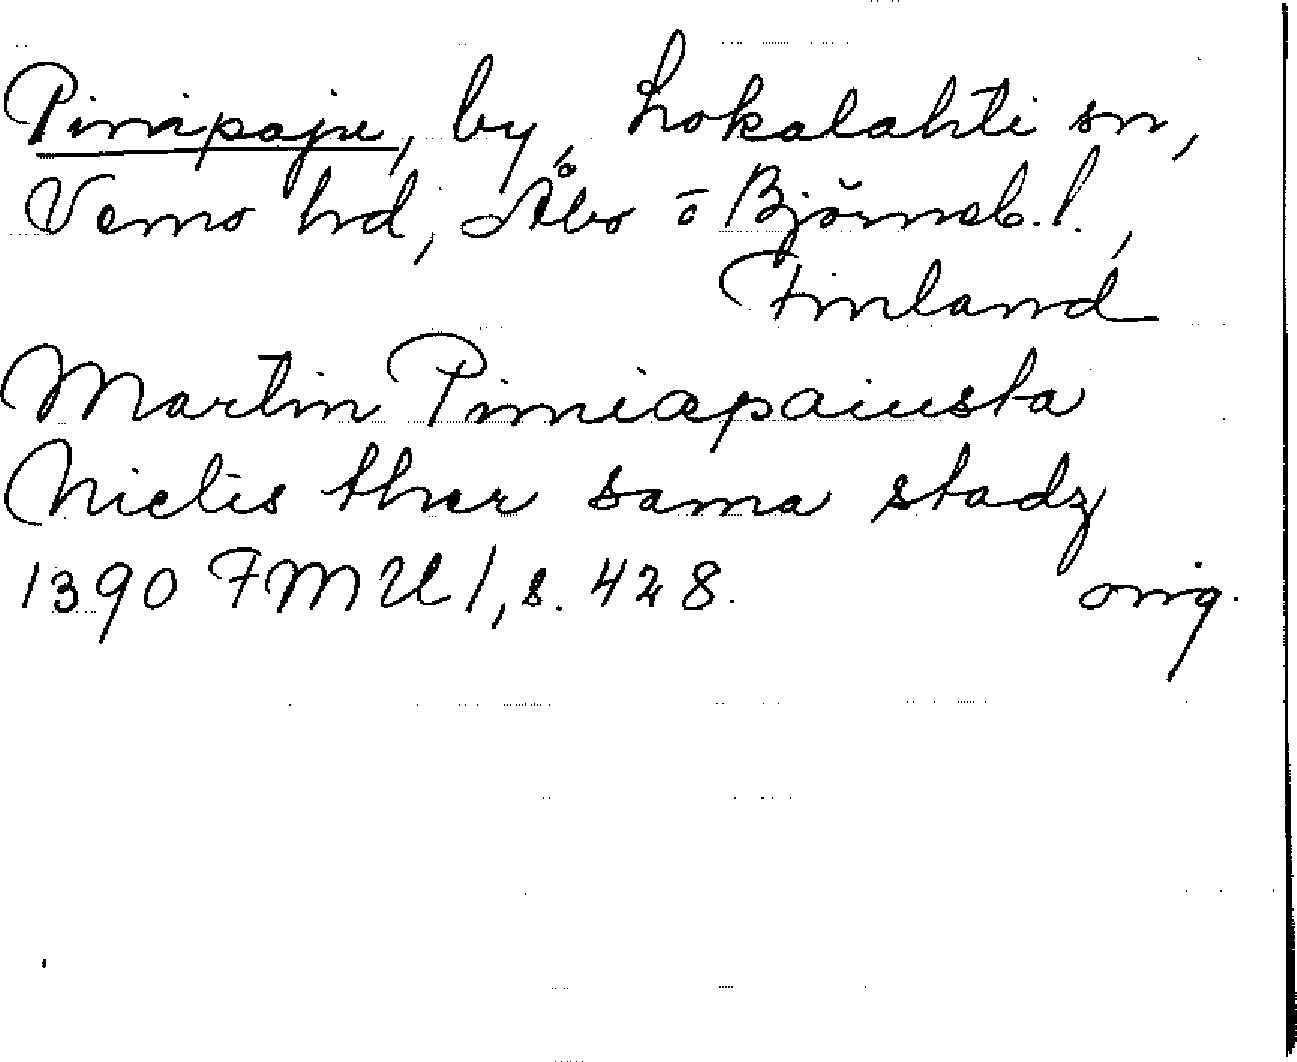 Pinipaju, by, Lokalahti sn,
Vemo hd, Åbo o Björneb. l.,
Finland
Martin Pimiæpaiusta
Niclis ther sama stadz
1390 FMU 1, s. 428. orig.